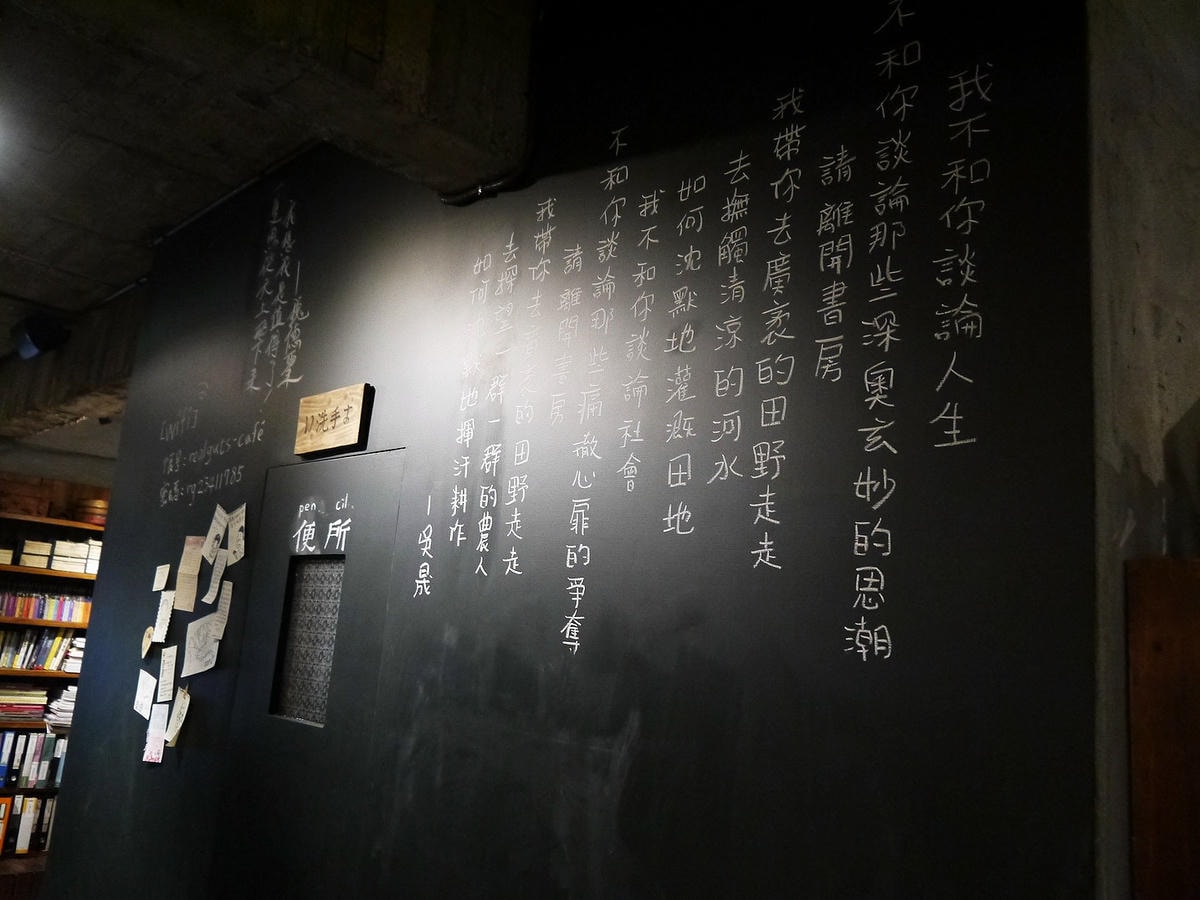 我不和你談論人生
不和你談論那些深奧玄妙的思潮
請離開書房
我帶你去廣袤的田野走走
去撫觸清涼的河水
如何沈默地灌溉田地
我不和你談論社會
不和你談論那些痛徹心扉的爭奪
請離開書房
我帶你去廣袤的田野走走
去探望一群一群的農人
如何沈默地揮汗耕作
—吳晟
洗手古
pen cil.
便所
[wifi]
帳號:realguts-café
密碼:rg23411785